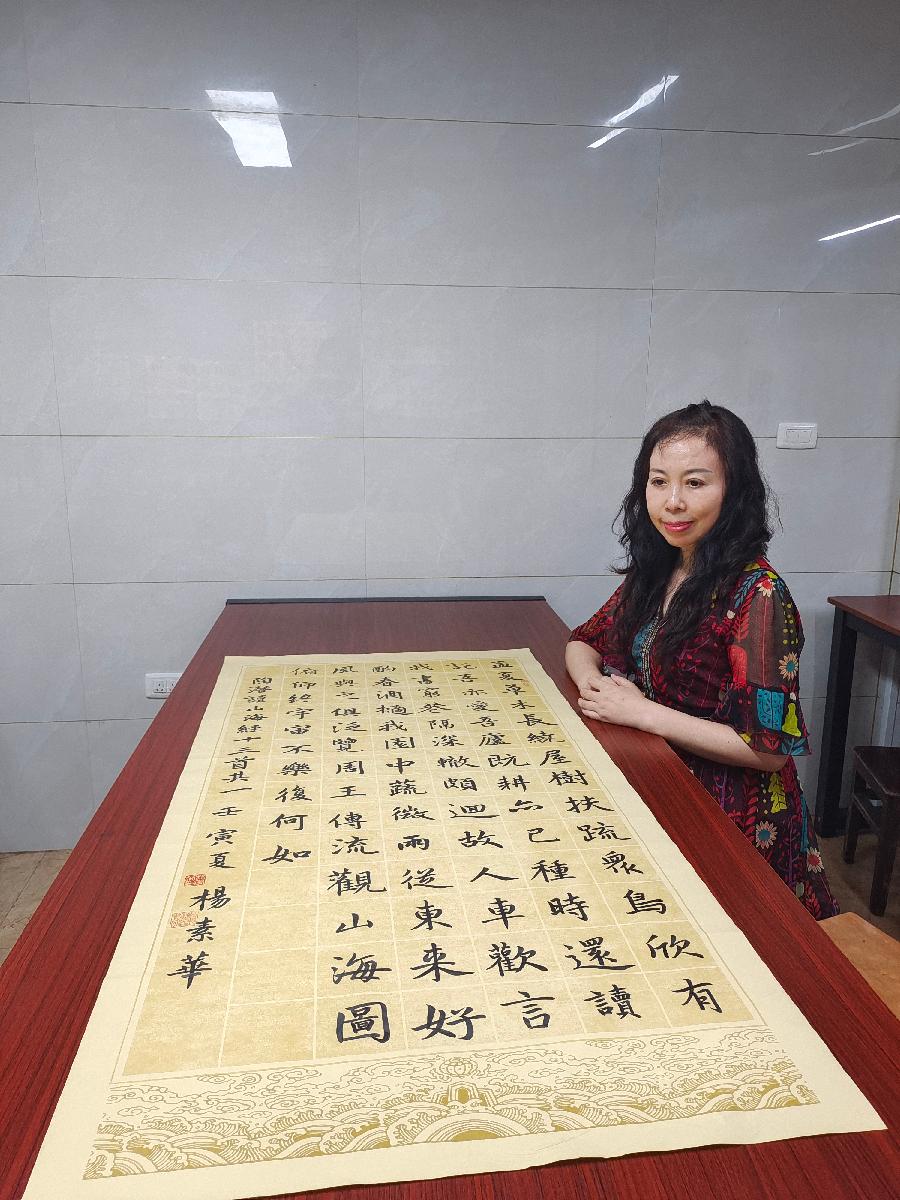 孟夏草木長繞屋樹扶疏衆鳥欣有
託吾亦愛吾廬既耕亦已種時還讀
我書窮巷隔深轍頗迴故人車歡言
酌春酒摘我園中蔬微雨從東来好
風與之俱泛覽周王傳流觀山海圖
俯仰終宇宙不樂復何如
陶潛讀山海經十三首其一壬寅夏楊素華